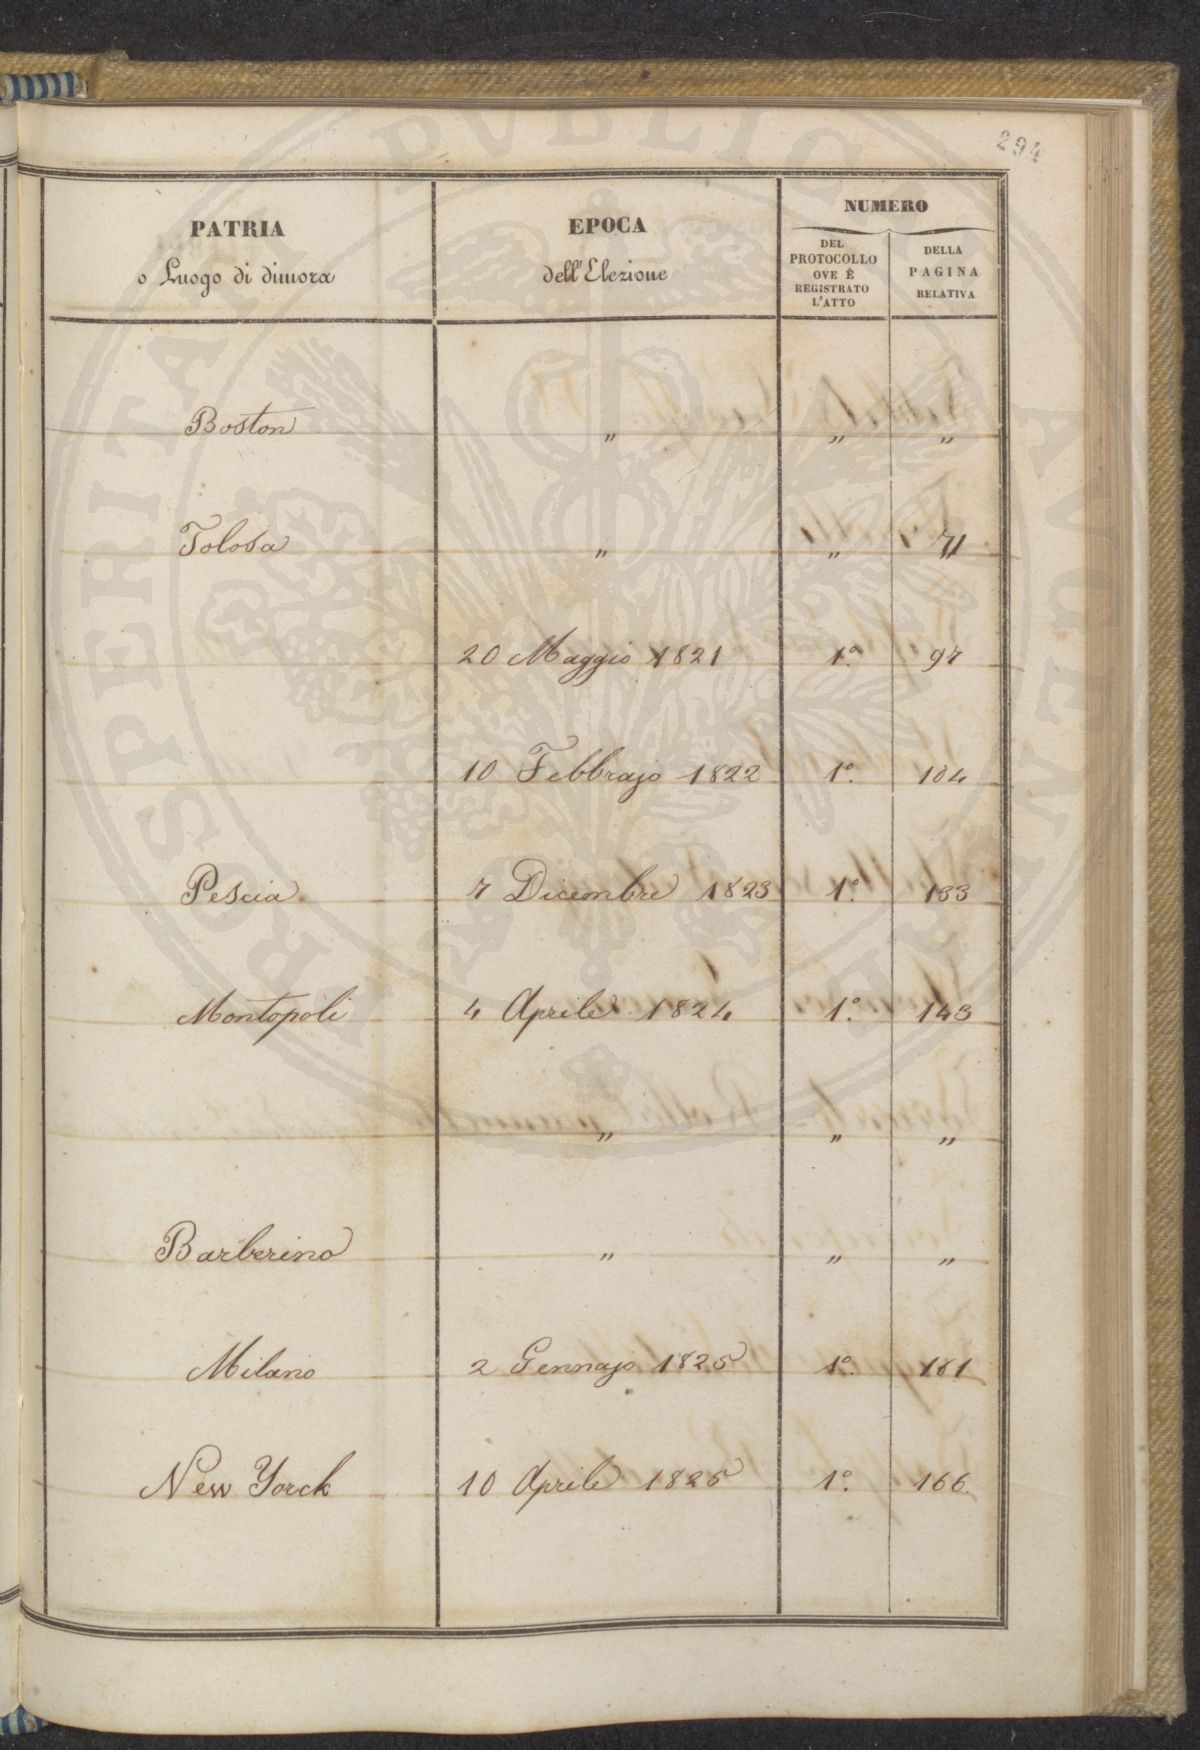 294
PATRIA
o Luogo di dimora
EPOCA
dell'Elezione
NUMERO
DEL
PROTOCOLLO
OVE È
REGISTRATO
L'ATTO
DELLA
PAGINA
RELATIVA
Boston „ „ „
Tolosa „ „ „
20 Maggio 1821 1º. 97
10 Febbrajo 1822 1º. 104
Pescia 7 Dicembre 1823 1º. 133
Montopoli 4 Aprile 1824 1º. 143
„ „ „
Barberino „ „ „
Milano 2 Gennajo 1825 1º. 161
New Yorck 10 Aprile 1825 1º. 166.
PROSPERITAS PVBLICA AVGENDA